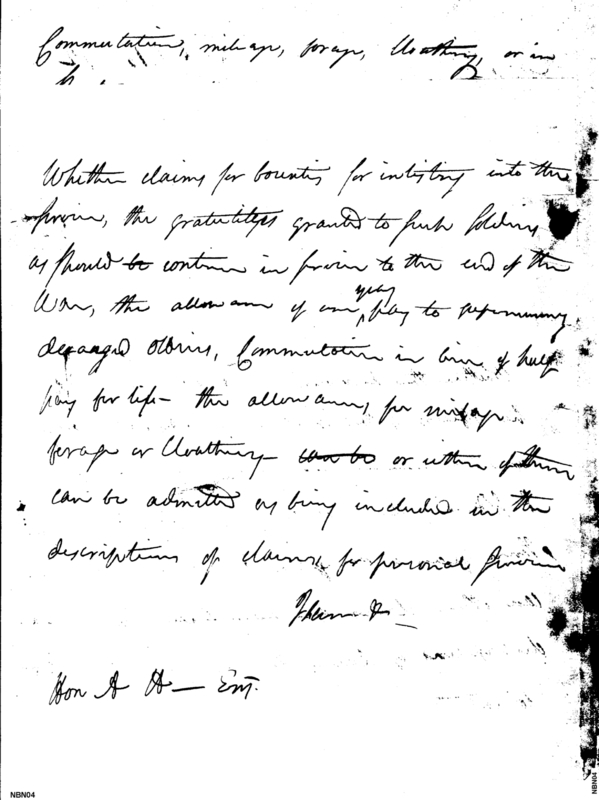 Commutation, mileage, forage, Cloathing, or in
Whether claims for bounties for inlisting into the
service, the gratuities granted to such Soldiers
as should be continue in service to the end of the
War, the allowance of one year pay to supernumery
deranged officers, Commutation in lieu of half
pay for life - the allowances for mileage
forage or Cloathing - can be or either of them
can be admitted as being included in the
descriptions of claims for personal Services
I have &
Hon A H — Esq.
NBN04
NBN04